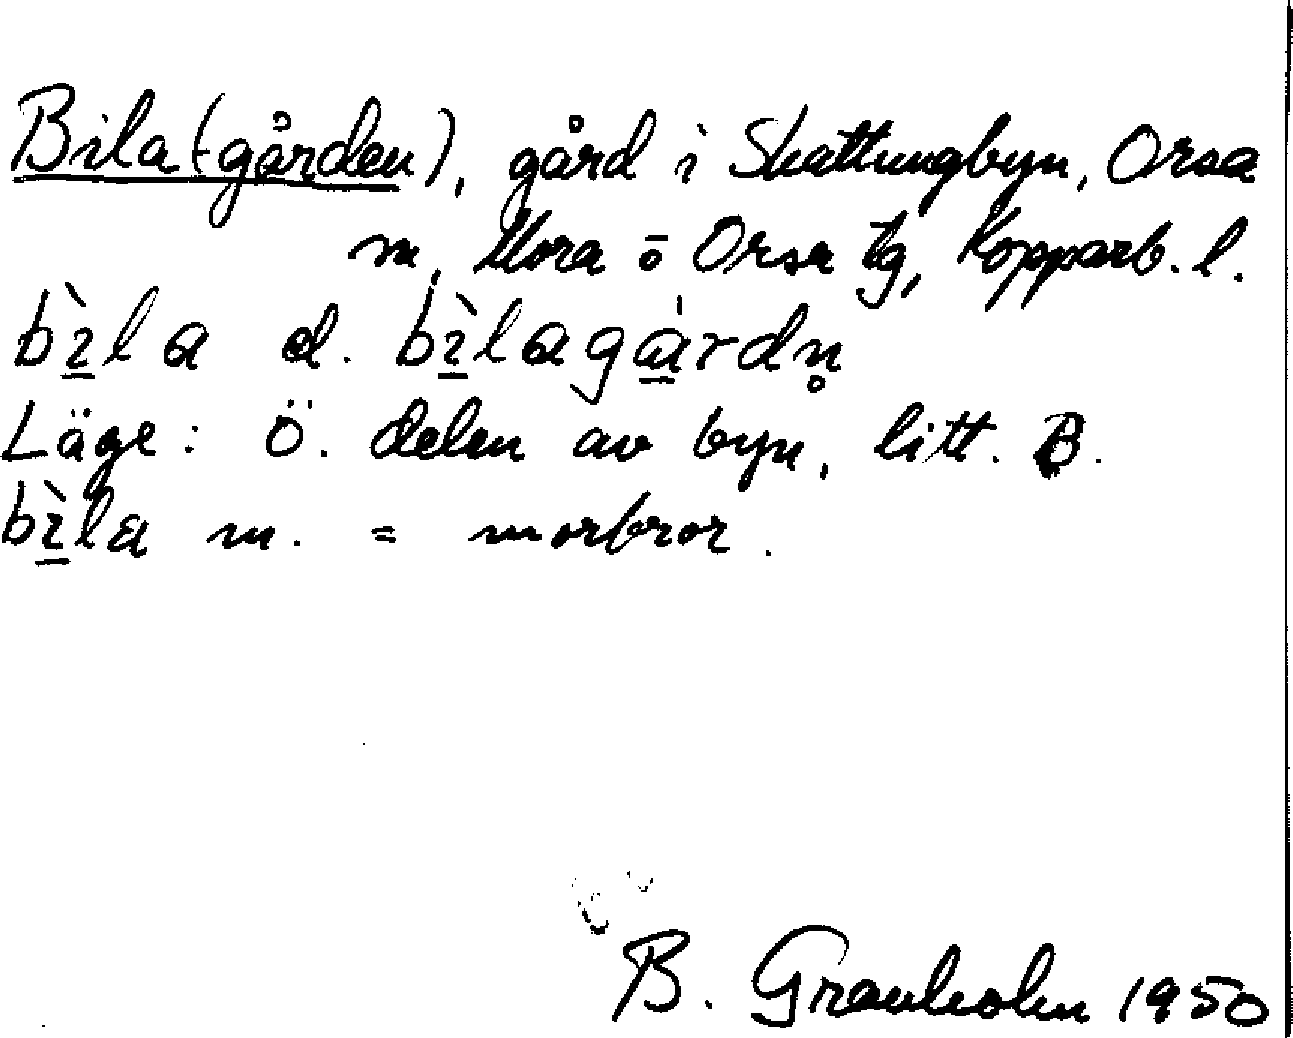 Bila(-gården), gård i Skattungbyn, Orsa
m, Mora o Orsa tg, Kopparb. l.
bìla d. bìlagàrdn̥
Läge: Ö. delen av byn, litt. B.
bìla m. = morbror.
B. Granholm 1950